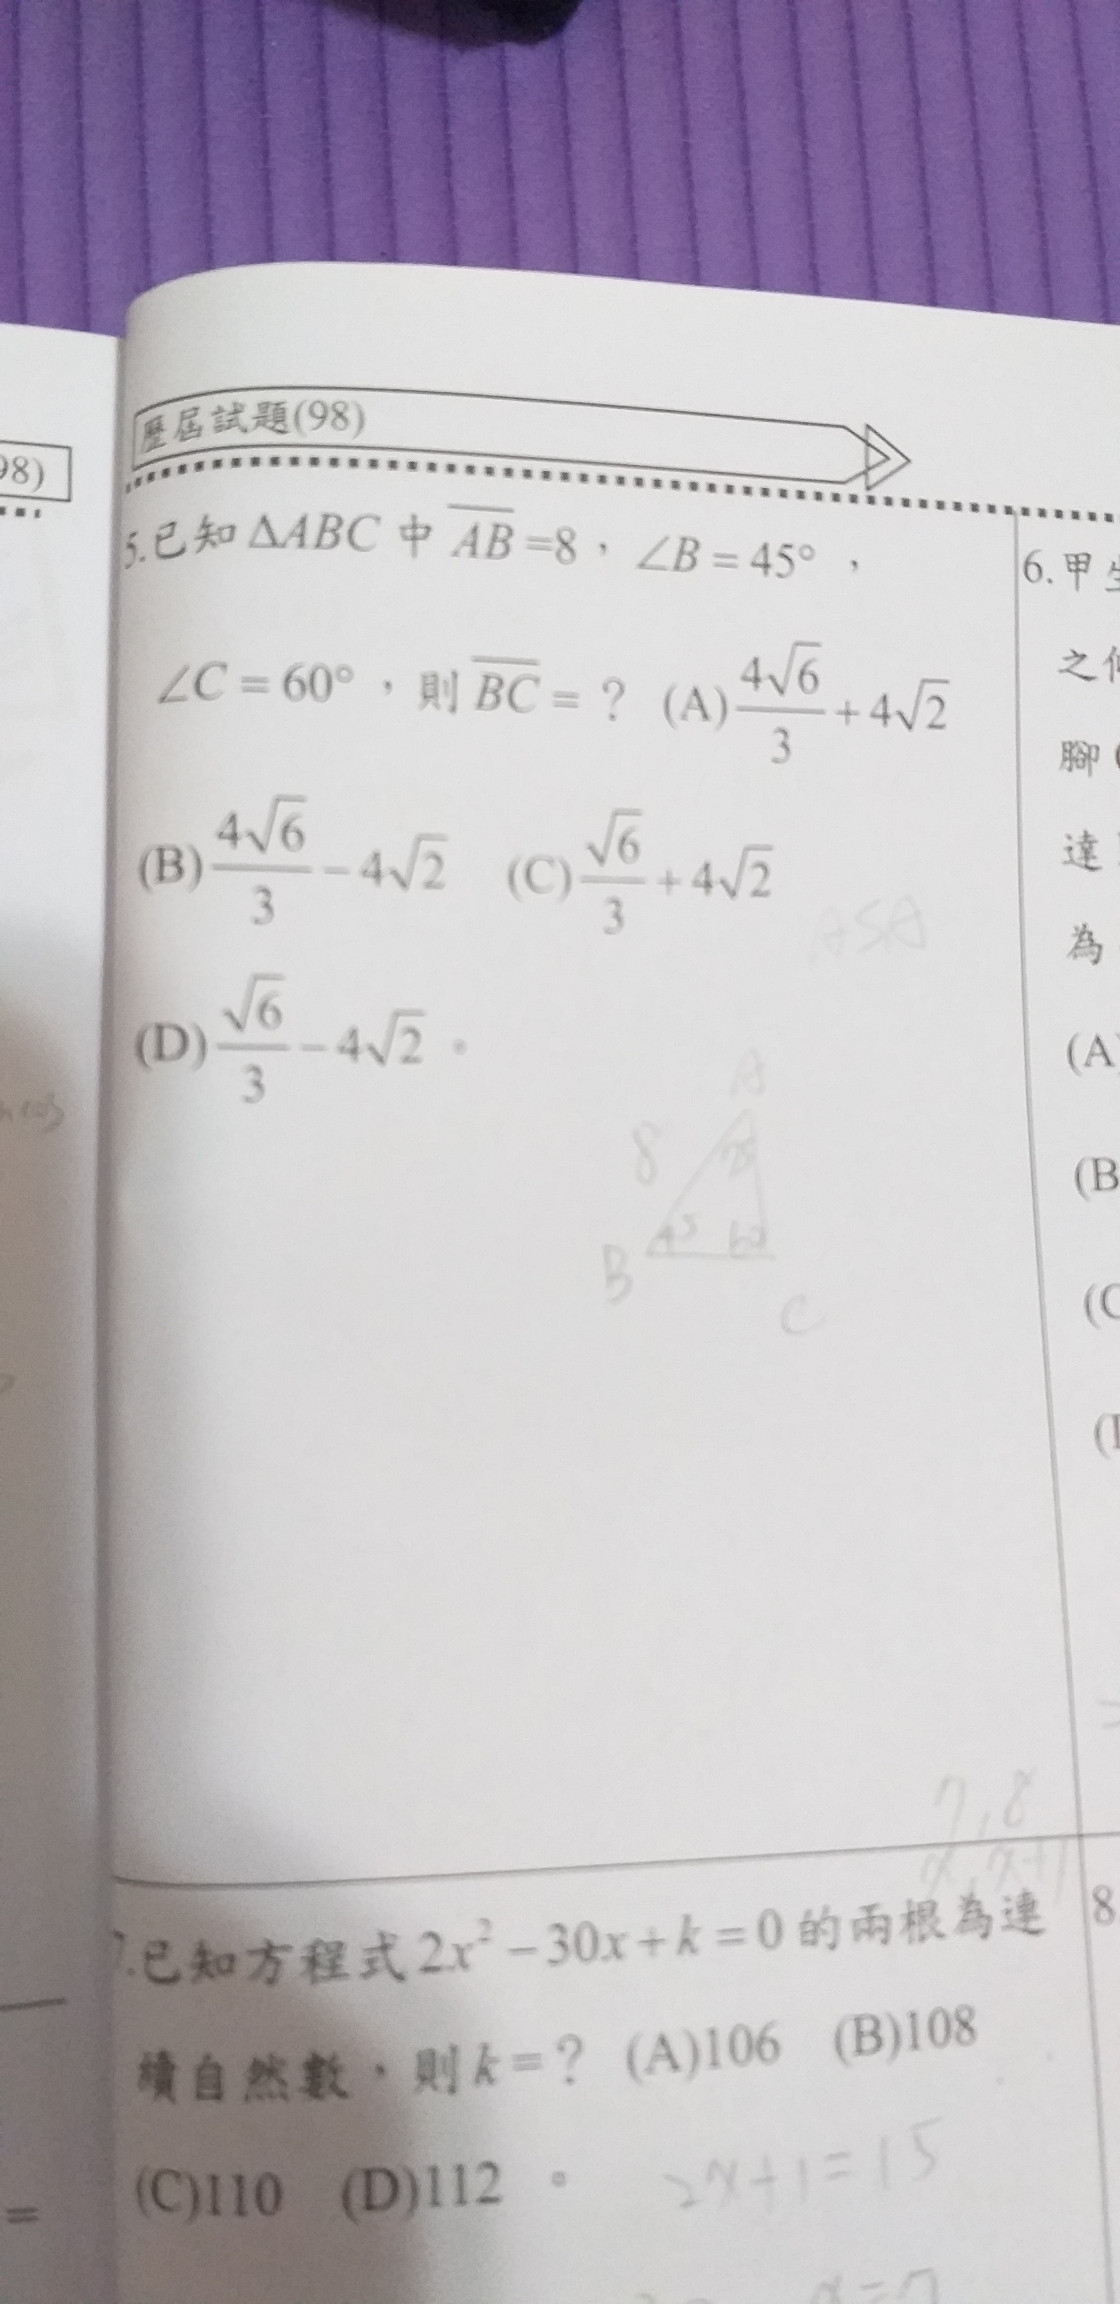 98)
歷屆試題(98)
5.已知 ΔABC 中 \overline{AB}=8，∠B=45°，
∠C=60°，則 \overline{BC}=？ (A)\frac{4√6}{3}+4√2
(B)\frac{4√6}{3}-4√2 (C)\frac{√6}{3}+4√2
ASA
(D)\frac{√6}{3}-4√2。
A
8
75
45 60
B
C
7,8
x, x+1
7.已知方程式 2x²-30x+k=0 的兩根為連
續自然數，則 k=？ (A)106 (B)108
(C)110 (D)112。
2x+1=15
x=7
=
6.甲生
之
腳
達
為
(A)
(B
(C
8